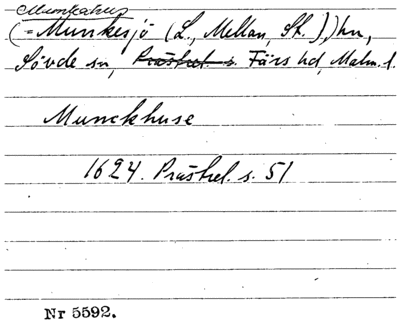 Munkahus
(= Munkesjö (L., Mellan, St.),) hn,
Sövde sn, Prästrel. s. Färs hd, Malm. l.
Munckhuse
1624. Prästrel. s. 51
Nr 5592.